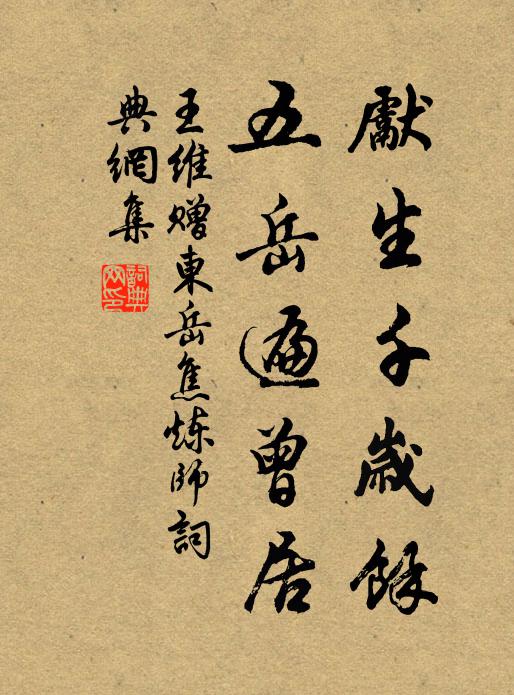 獻生千歲餘
五岳遍曾居
王維贈東岳焦煉師詞
典網集
詞典网印